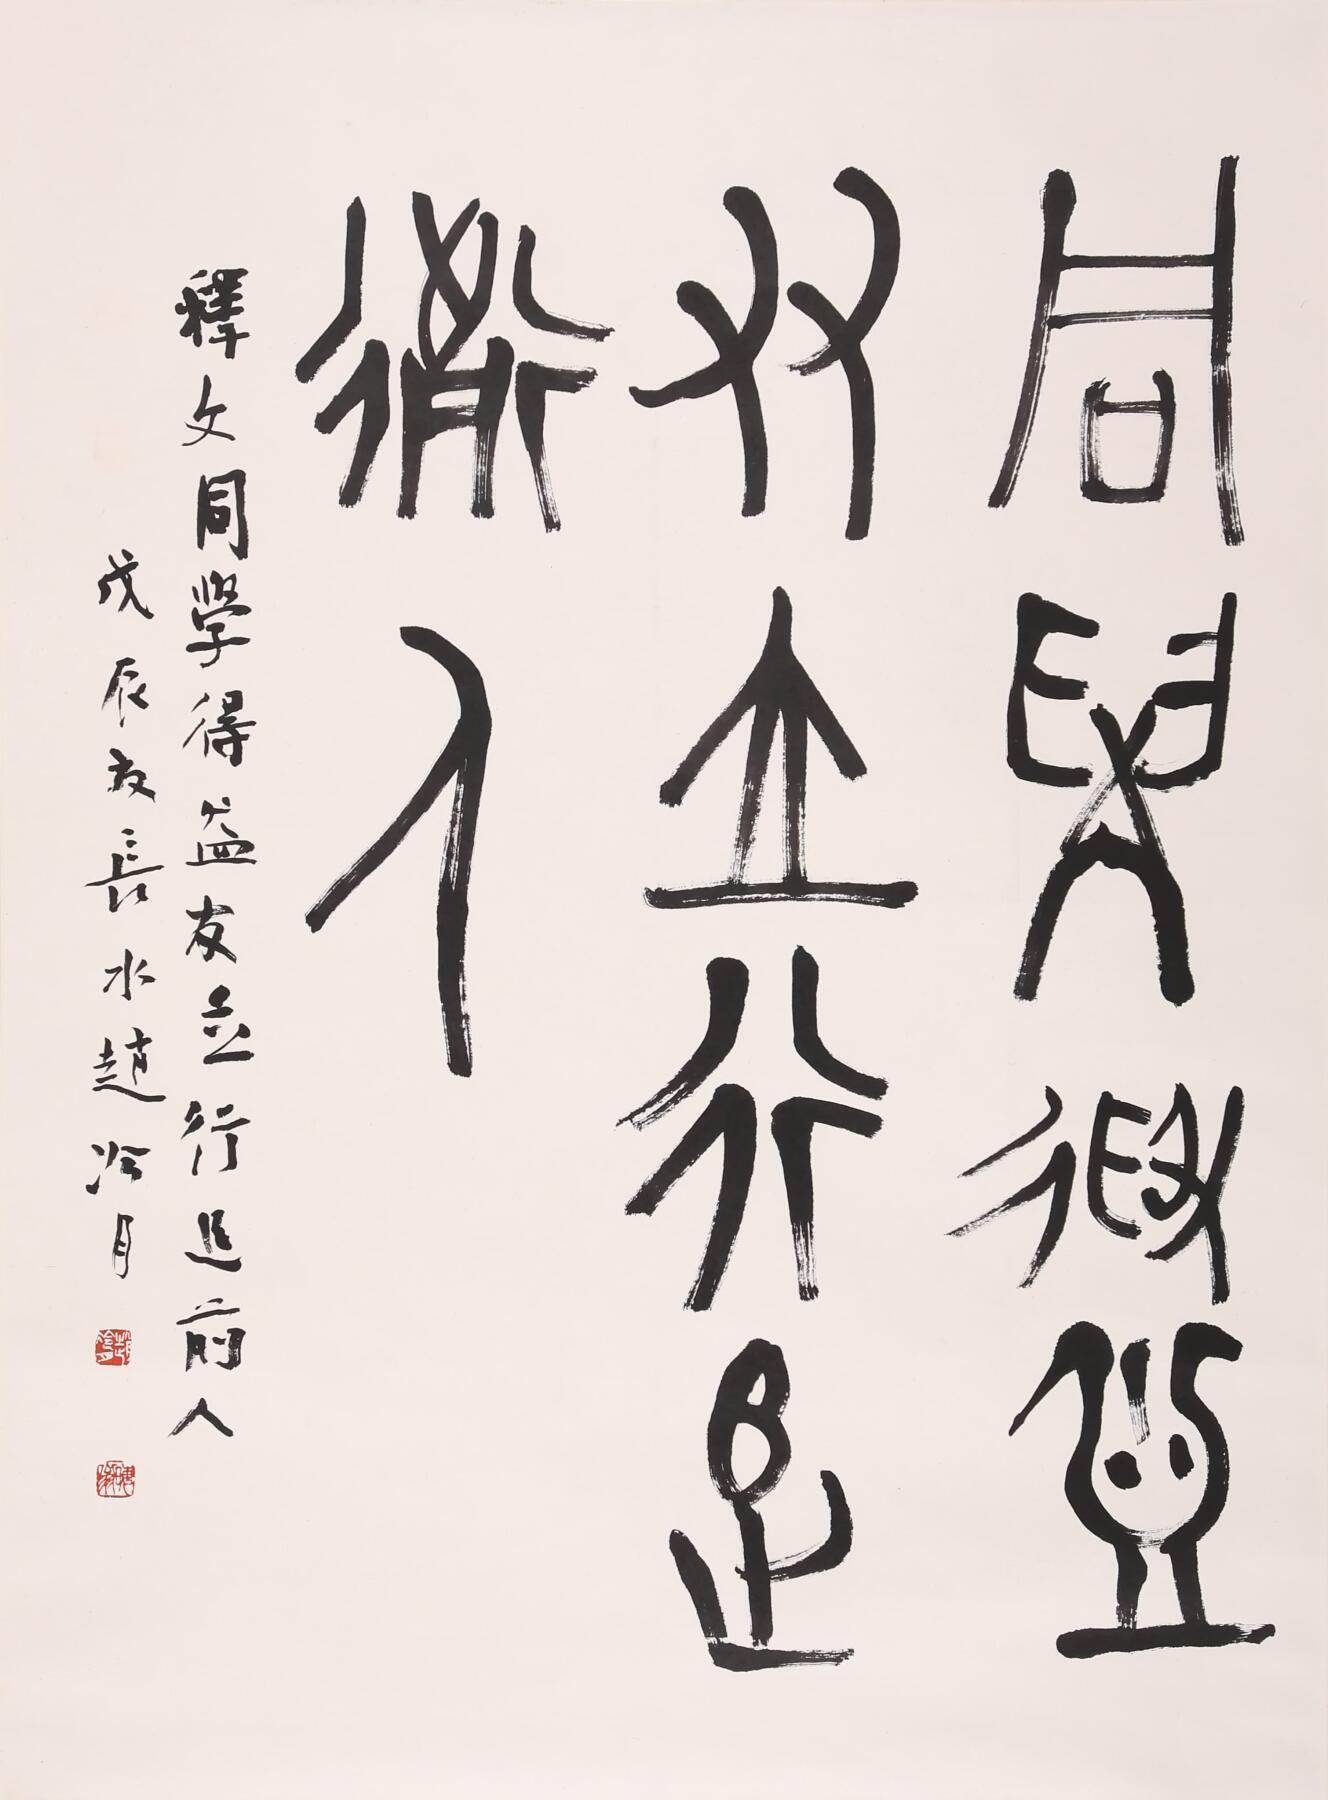 同學得益
友並行𨒌
前人
釋文同學得益友並行追前人
戊辰夜長水趙冷月